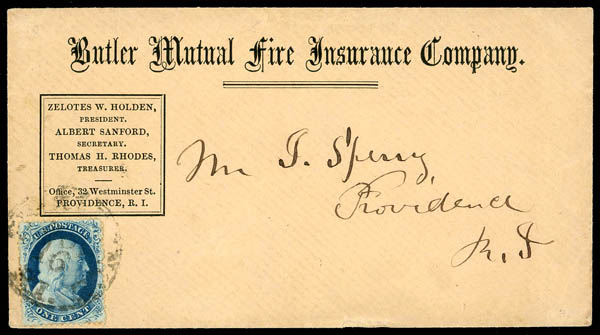 Butler Mutual Fire Insurance Company.
ZELOTES W. HOLDEN,
PRESIDENT.
ALBERT SANFORD,
SECRETARY.
THOMAS H. RHODES,
TREASURER.
Office, 32 Westminster St.
PROVIDENCE, R. I.
Mr J. Sperry,
Providence
R. I
U.S. POSTAGE
ONE CENT